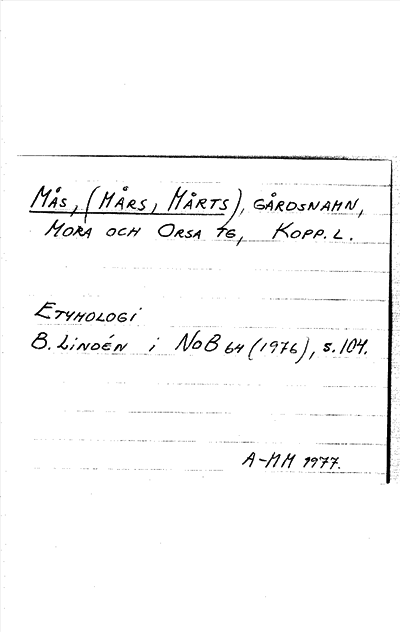 Mås, (Mårs, Mårts), gårdsnamn,
Mora och Orsa tg, Kopp. l.
Etymologi
B. Lindén i NoB 64 (1976), s. 104.
A-MM 1977.